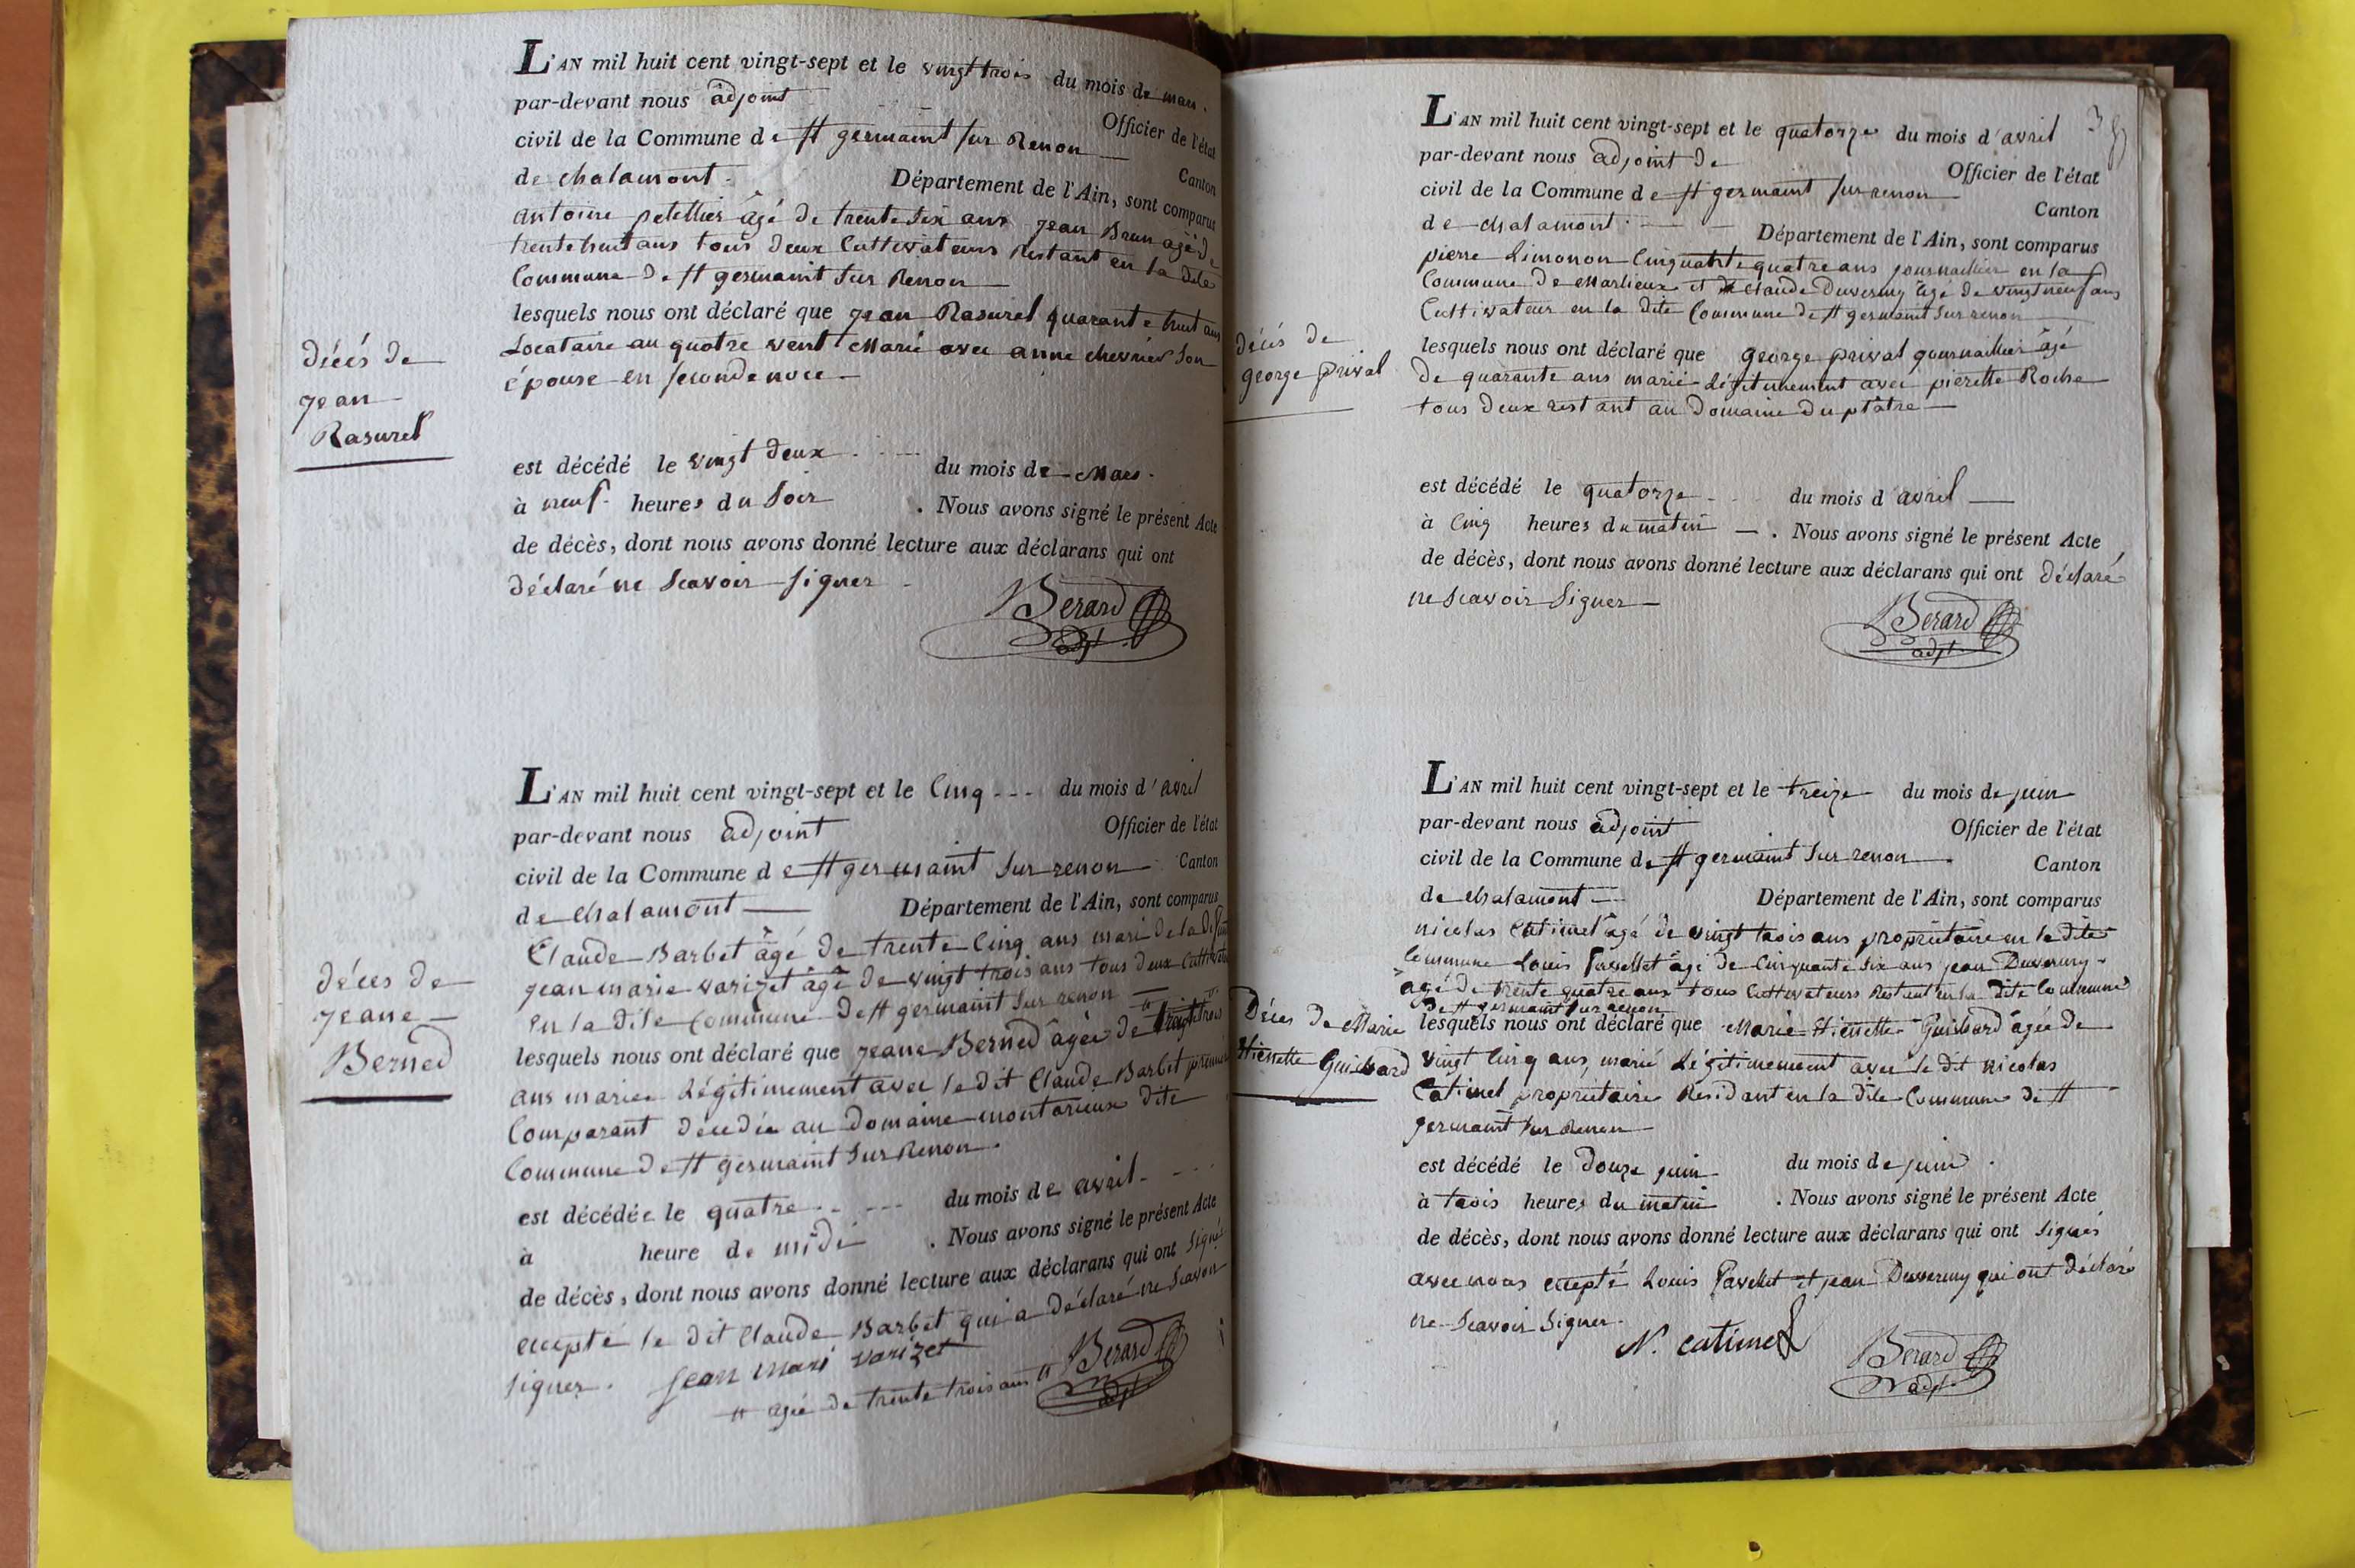 L'AN mil huit cent vingt-sept et le vingt trois du mois de mars.
par-devant nous adjoint Officier de l'état
civil de la Commune de st germaint sur Renon Canton
de chalamont. Département de l'Ain, sont comparus
antoine petellier âgé de trente six ans jean Brun agé de
trente huit ans tous deux Cultivateurs Restant en la dite
Commune de st germaint sur Renon
lesquels nous ont déclaré que jean Rasurel quarante huit ans
Locataire au quatre vent Marié avec anne chevrier son
épouse en seconde noce
décés de
jean
Rasurel
est décédé le vingt deux du mois de Mars.
à neuf heures du soir . Nous avons signé le présent Acte
de décès, dont nous avons donné lecture aux déclarans qui ont
déclaré ne scavoir signer
Berard
adjt
L'AN mil huit cent vingt-sept et le Cinq --- du mois d'avril
par-devant nous adjoint Officier de l'état
civil de la Commune de st germaint sur renon Canton
de chalamont Département de l'Ain, sont comparus
Claude Barbet âgé de trente Cinq ans mari de la
jean marie varizet âgé de vingt trois ans tous deux
en la dite Commune de st germaint sur renon
décés de
jeane
Berned
lesquels nous ont déclaré que jeane Berned âgée de
ans mariée Légitimement avec le dit Claude Barbet premier
Comparant décédée au Domaine montarieux dite
Commune de st germaint sur Renon.
est décédée le quatre du mois de avril
à heure de midi . Nous avons signé le présent Acte
de décès, dont nous avons donné lecture aux déclarans qui ont signé
excepté le dit Claude Barbet qui a déclaré ne scavoir
signer. jean mari varizet Berard
# agée de trente trois ans # adjt
3
L'AN mil huit cent vingt-sept et le quatorze du mois d'avril
par-devant nous adjoint de Officier de l'état
civil de la Commune de st germaint sur renon Canton
de chalamont Département de l'Ain, sont comparus
pierre Limonon Cinquante quatre ans journaillier en la
Commune de Marlieux et Claude Duverny âgé de vingt neuf ans
Cultivateur en la dite Commune de st germaint sur renon
décés de
george prival
lesquels nous ont déclaré que george prival journaillier âgé
de quarante ans marié Légitimement avec pierette Roche
tous deux restant au Domaine du plâtre
est décédé le quatorze du mois d'avril
à Cinq heures du matin . Nous avons signé le présent Acte
de décès, dont nous avons donné lecture aux déclarans qui ont déclaré
ne scavoir signer
Berard
adjt
L'AN mil huit cent vingt-sept et le treize du mois de juin
par-devant nous adjoint Officier de l'état
civil de la Commune de st germaint sur renon Canton
de chalamont Département de l'Ain, sont comparus
nicolas Catimel âgé de vingt trois ans propriétaire en la dite
Commune Louis âgé de Cinquante six ans jean Duverny
agé de trente quatre ans tous Cultivateurs Restant en la dite Commune
de st germaint sur renon
Déces de Marie
Guichard
lesquels nous ont déclaré que Marie Guichard âgée de
vingt Cinq ans, marié Légitimement avec le dit nicolas
Catimel propriétaire Residant en la dite Commune de st
germaint sur Renon
est décédé le douze juin du mois de juin.
à trois heures du matin . Nous avons signé le présent Acte
de décès, dont nous avons donné lecture aux déclarans qui ont signés
avec nous excepté Louis et jean Duverny qui ont déclaré
ne scavoir signer.
N. catimel Berard
adjt